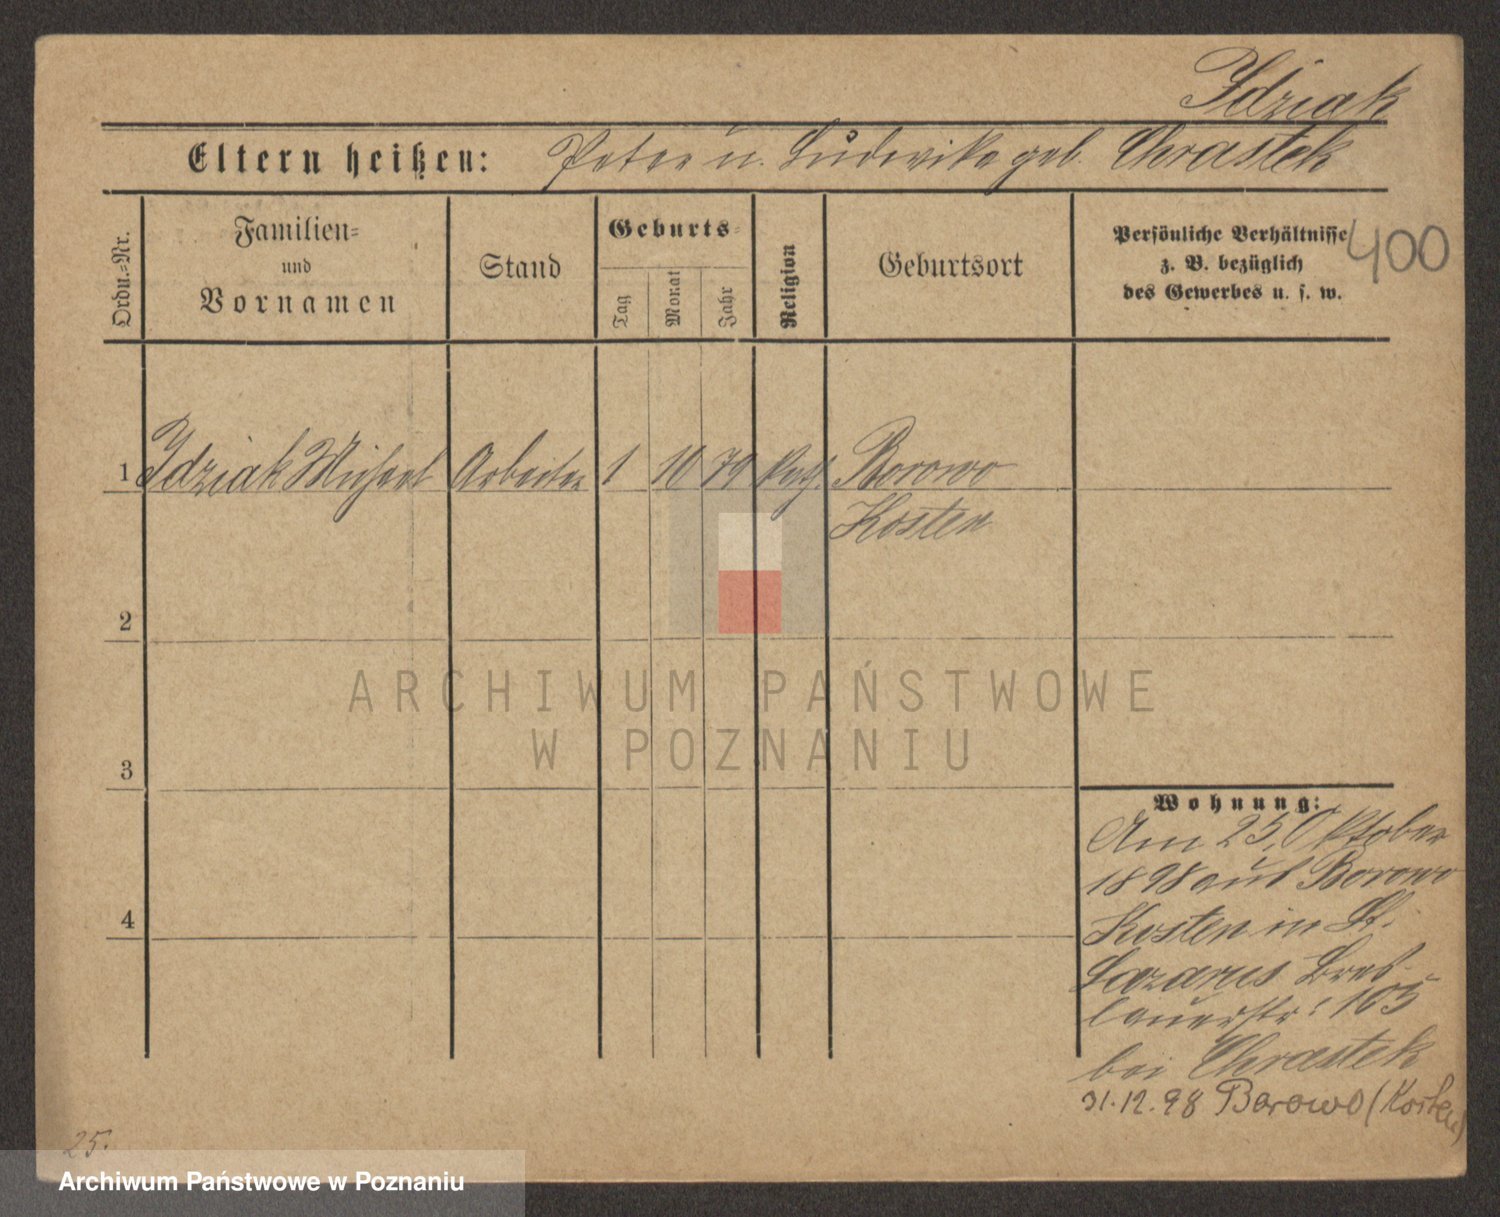 Idziak
Eltern heißen: Peter u. Ludwika geb. Chrastek
Ordn.-Nr.
Familien-
und
Vornamen
Stand
Geburts-
Tag
Monat
Jahr
Religion
Geburtsort
Persönliche Verhältnisse
z. B. bezüglich
des Gewerbes u. s. w.
400
1 Idziak Michael Arbeiter 1 10 79 kath. Borowo
Kosten
2
ARCHIWUM PAŃSTWOWE
W POZNANIU
3
Wohnung:
Am 25. Oktober
1898 aus Borowo
Kosten in St.
Lazarus Bres-
lauerstr. 105
bei Chrastek
31.12.98 Borowo (Kosten)
4
25.
Archiwum Państwowe w Poznaniu